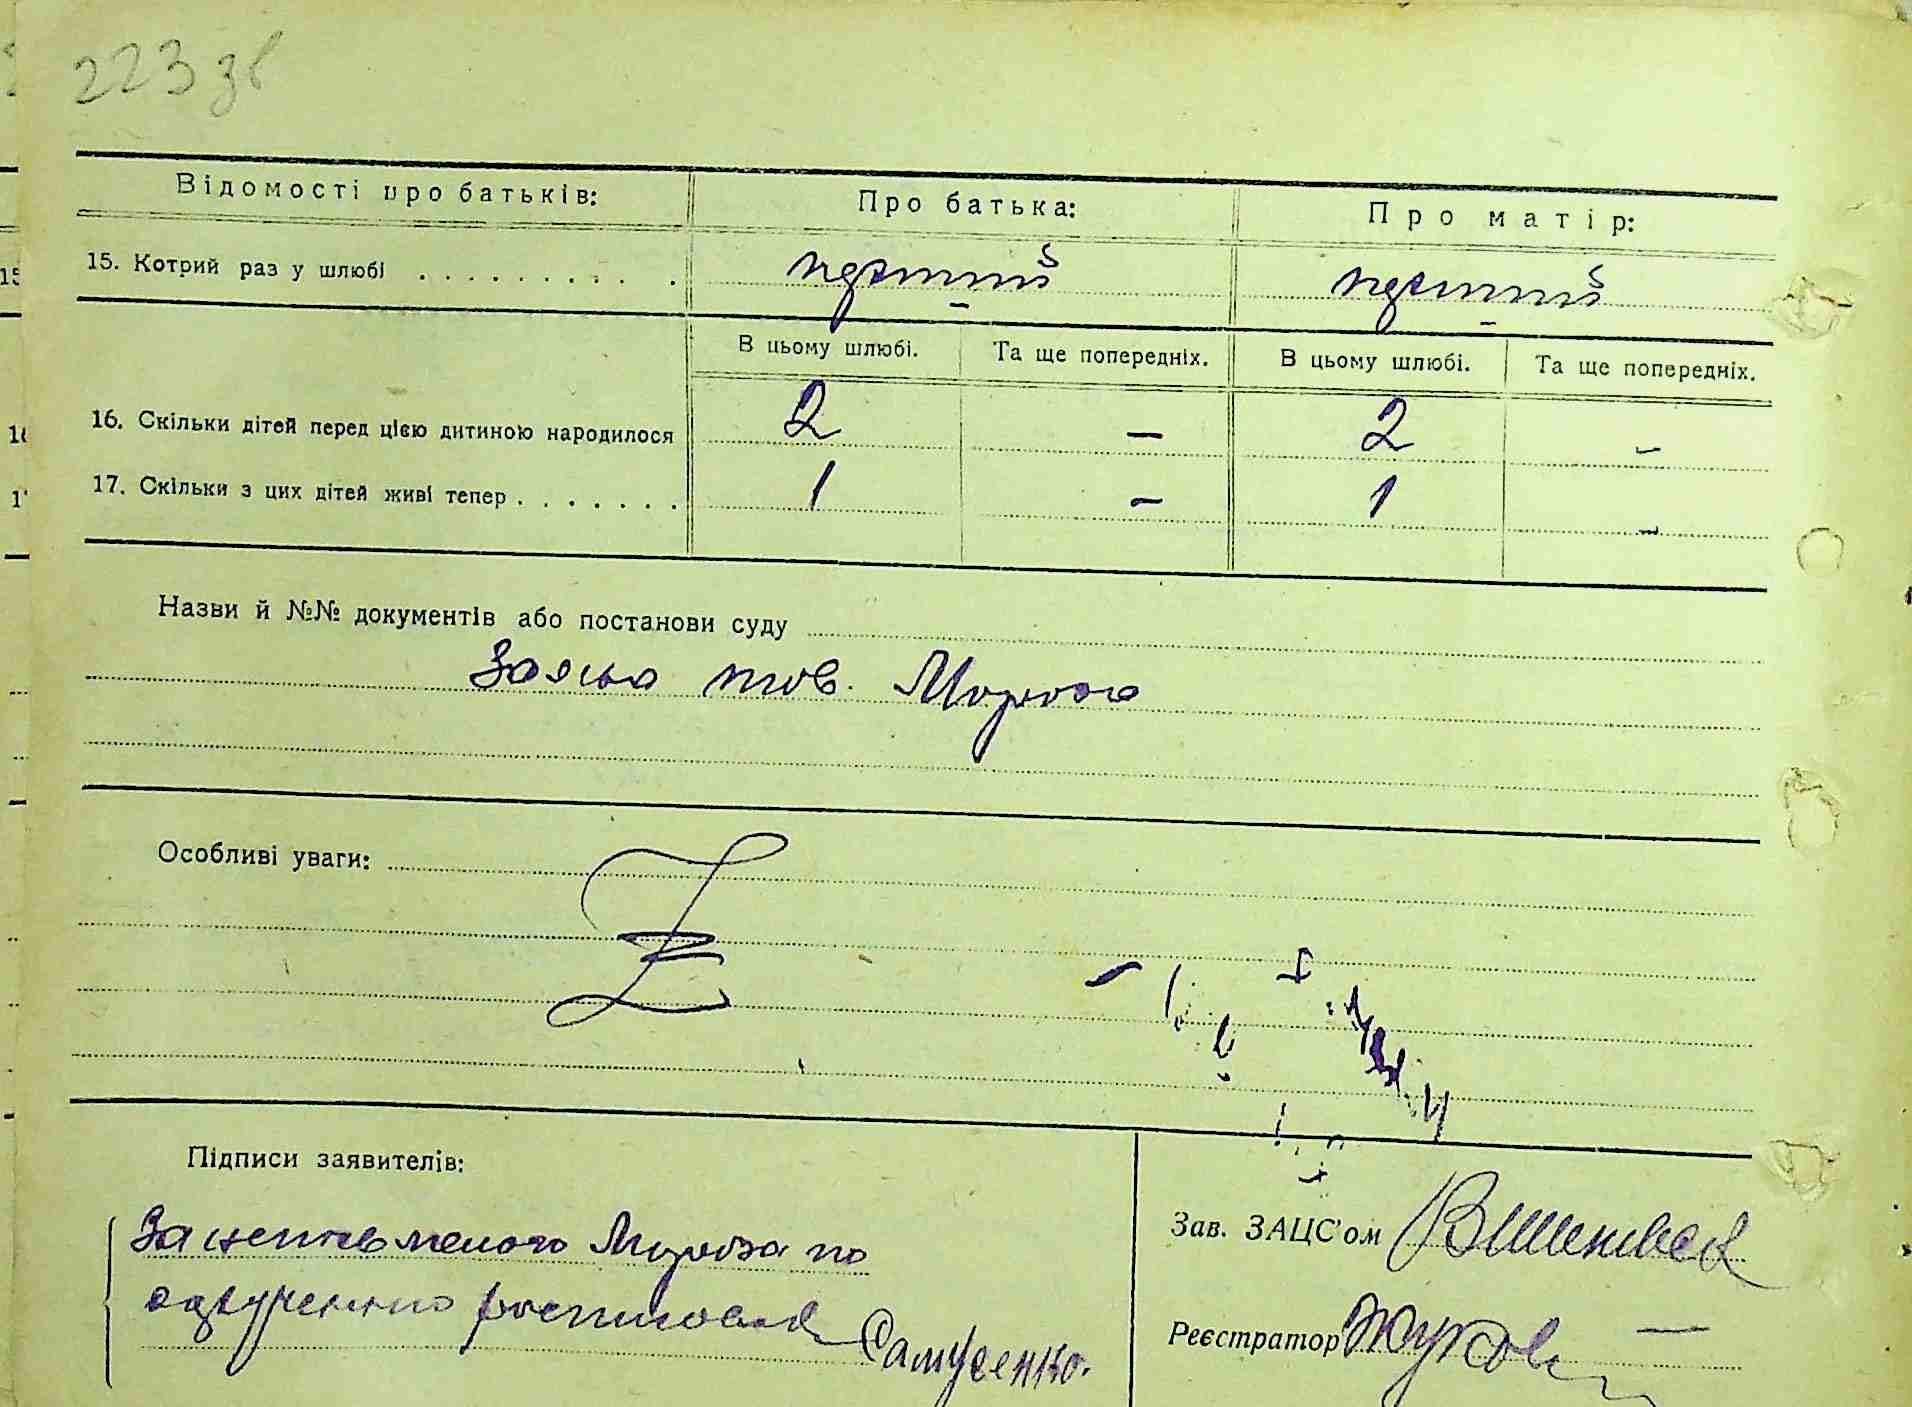 223 зв
Відомості про батьків: Про батька: Про матір:
15. Котрий раз у шлюбі . . . . . . . . . . перший перший
В цьому шлюбі. Та ще попередніх. В цьому шлюбі. Та ще попередніх.
16. Скільки дітей перед цією дитиною народилося 2 – 2 –
17. Скільки з цих дітей живі тепер . . . . . . . 1 – 1 –
Назви й №№ документів або постанови суду
Заява тов. Мороза
Особливі уваги:
Підписи заявителів:
За неписьменого Мороза по
Самусенко.
Зав. ЗАЦС'ом
Реєстратор Жуков